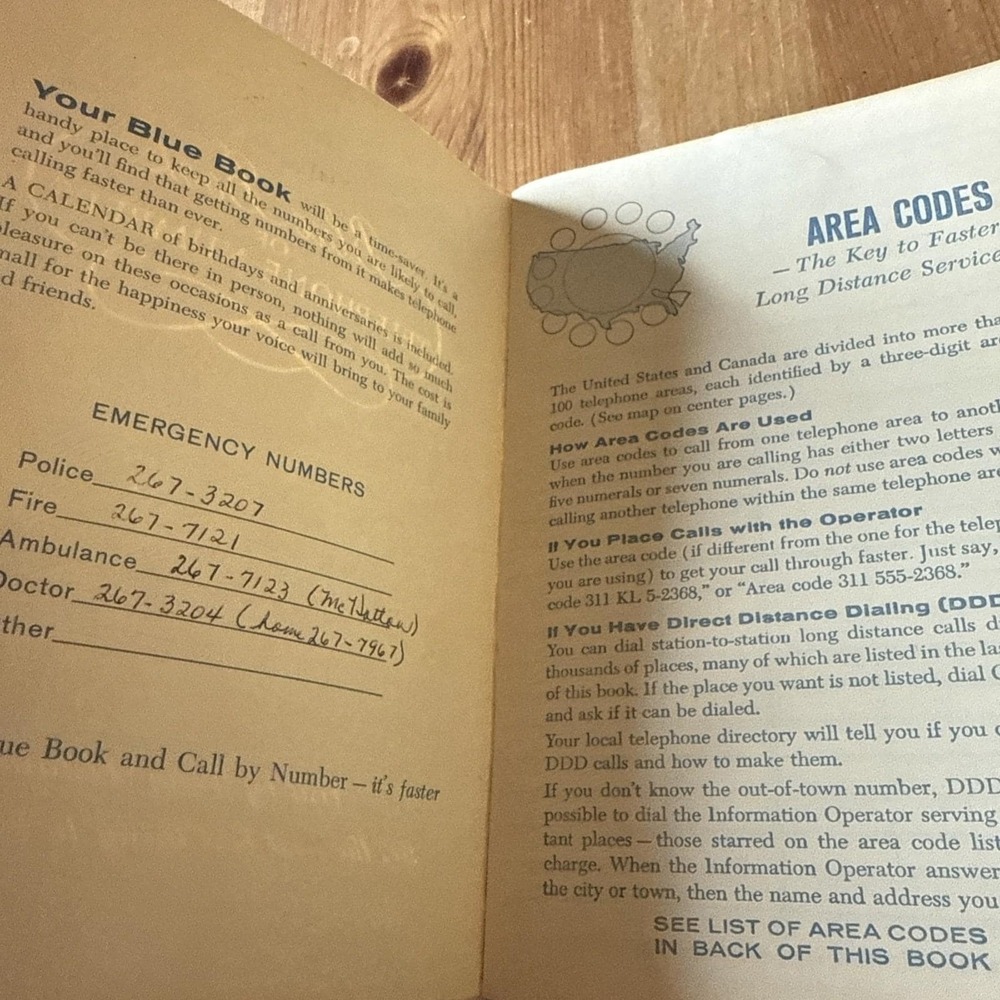 Your Blue Book will be a time-saver. It's a
handy place to keep all the numbers you are likely to call,
and you'll find that getting numbers from it makes telephone
calling faster than ever.
A CALENDAR of birthdays and anniversaries is included.
If you can't be there in person, nothing will add so much
pleasure on these occasions as a call from you. The cost is
mall for the happiness your voice will bring to your family
d friends.
EMERGENCY NUMBERS
Police 267-3207
Fire 267-7121
Ambulance 267-7123 (McHatton)
Doctor 267-3204 (home 267-7967)
ther
ue Book and Call by Number – it's faster
AREA CODES
– The Key to Faster
Long Distance Service
The United States and Canada are divided into more tha
100 telephone areas, each identified by a three-digit ar
code. (See map on center pages.)
How Area Codes Are Used
Use area codes to call from one telephone area to anoth
when the number you are calling has either two letters
five numerals or seven numerals. Do not use area codes w
calling another telephone within the same telephone are
If You Place Calls with the Operator
Use the area code (if different from the one for the telep
you are using) to get your call through faster. Just say,
code 311 KL 5-2368," or "Area code 311 555-2368."
If You Have Direct Distance Dialing (DDD
You can dial station-to-station long distance calls di
thousands of places, many of which are listed in the la
of this book. If the place you want is not listed, dial O
and ask if it can be dialed.
Your local telephone directory will tell you if you c
DDD calls and how to make them.
If you don't know the out-of-town number, DDD
possible to dial the Information Operator serving
tant places – those starred on the area code list
charge. When the Information Operator answer
the city or town, then the name and address you
SEE LIST OF AREA CODES
IN BACK OF THIS BOOK